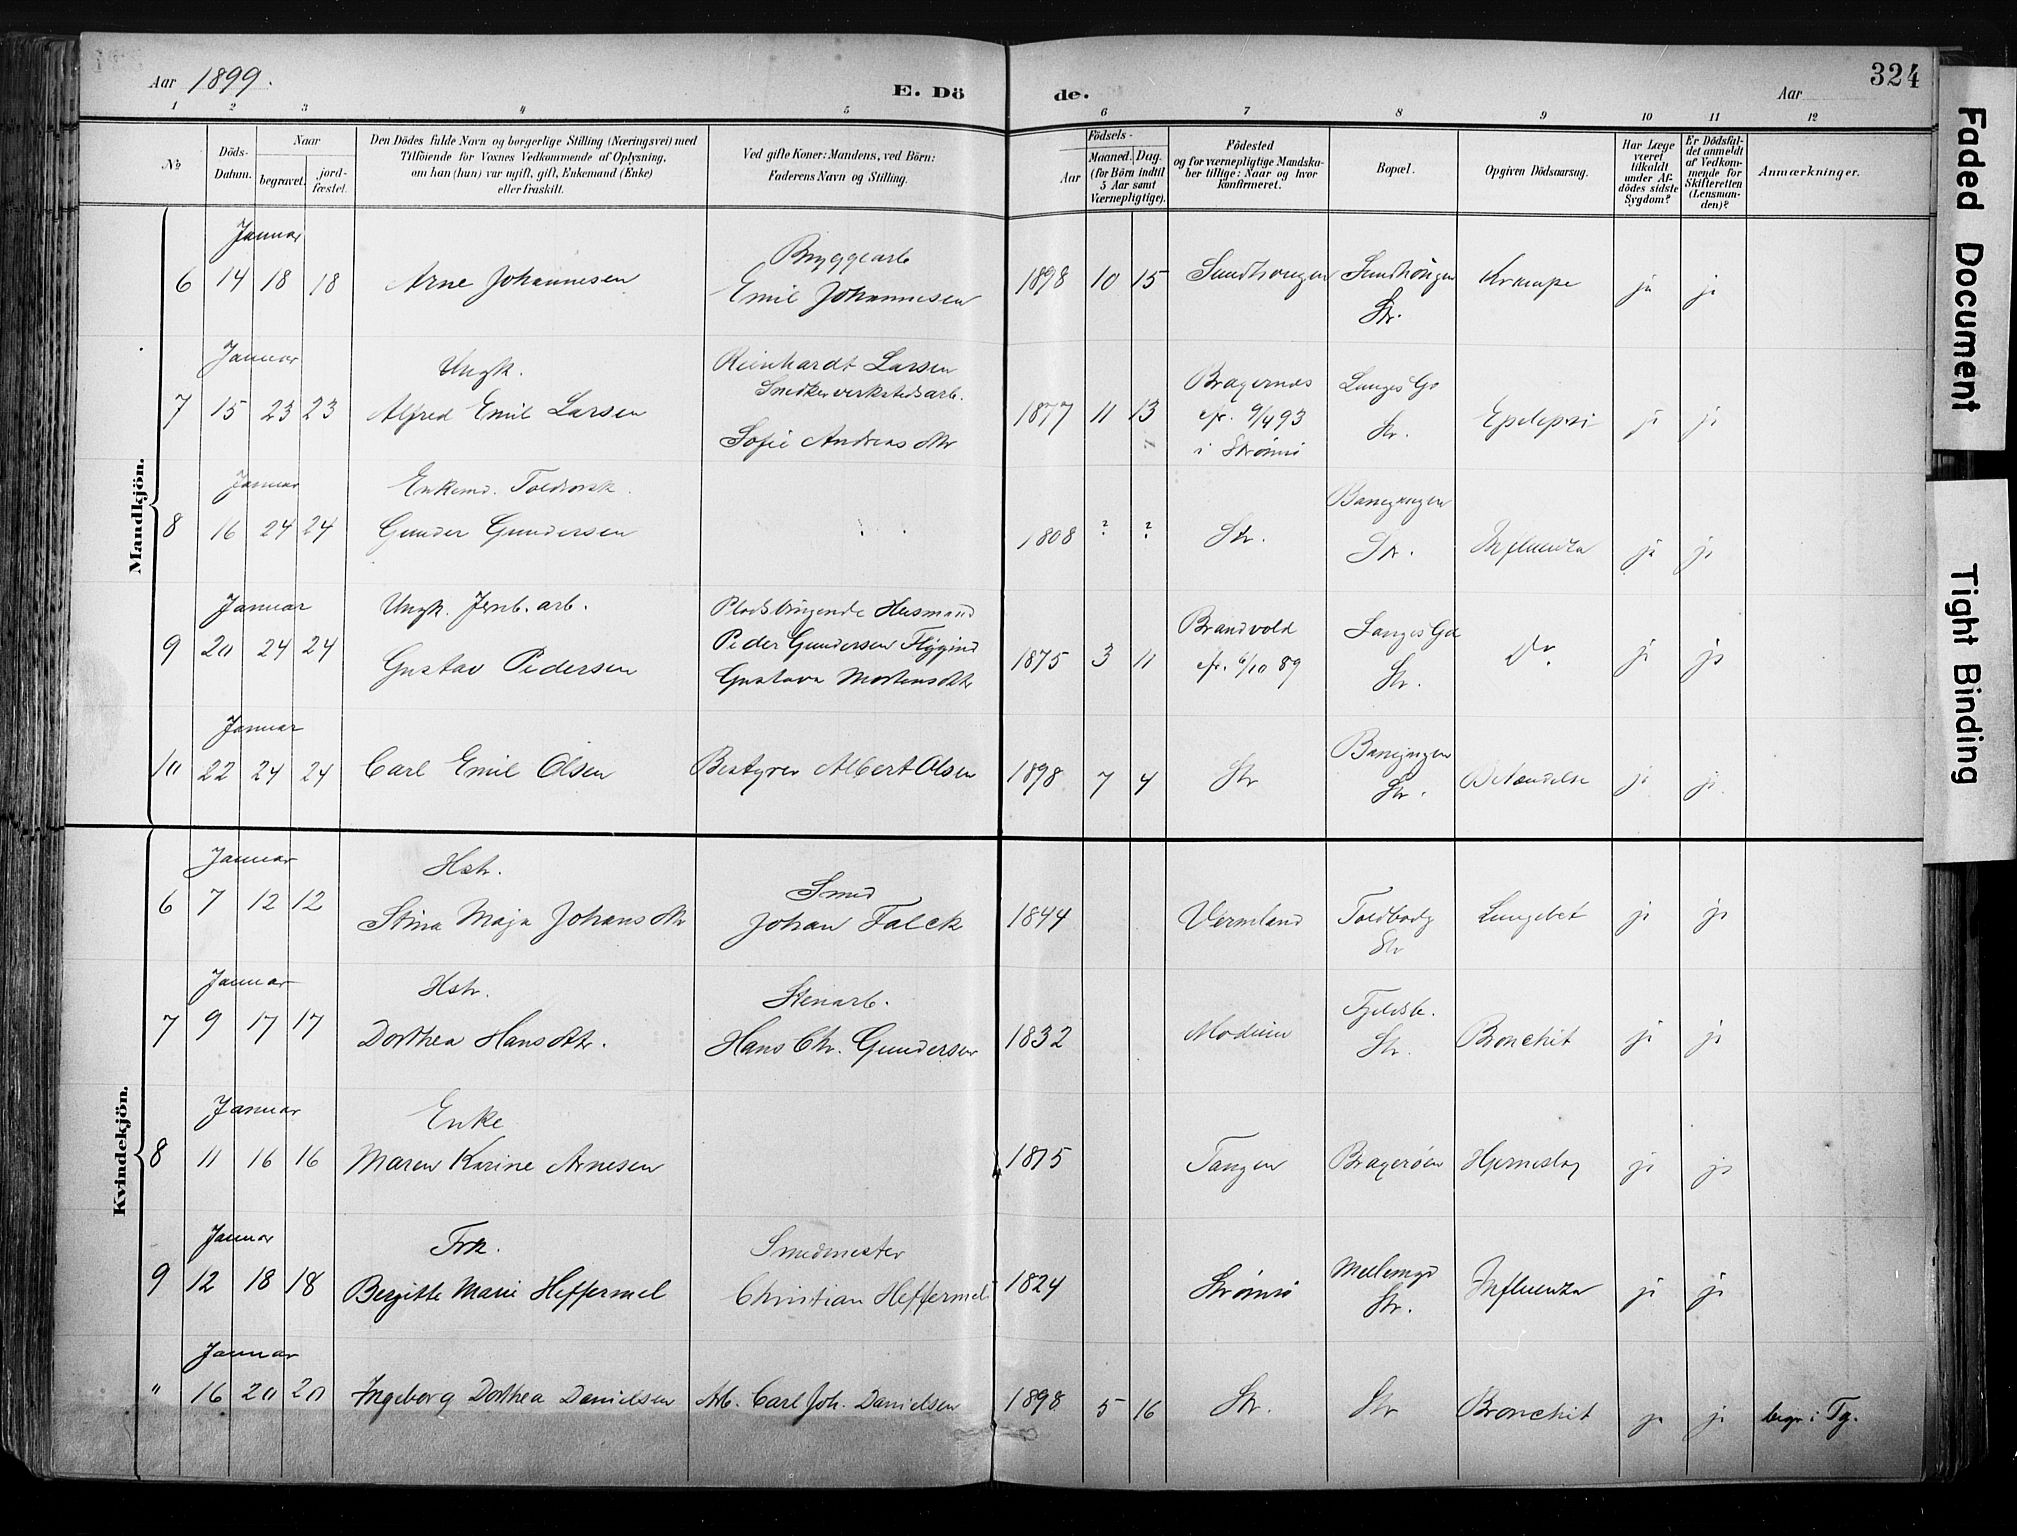 Aar 1899.
E. Döde.
Aar
324
1 2 3 4 5 6 7 8 9 10 11 12
№
Döds-Datum.
Naar
begravet.
jordfæstet.
Den Dödes fulde Navn og borgerlige Stilling (Næringsvei) med
Tilföiende for Voxnes Vedkommende af Oplysning,
om han (hun) var ugift, gift, Enkemand (Enke)
eller fraskilt.
Ved gifte Koner: Mandens, ved Börn:
Faderens Navn og Stilling.
Födsels-
Aar
Maaned. Dag.
(for Börn indtil
5 Aar samt
Værnepligtige).
Födested
og for værnepligtige Mandska-
ber tillige: Naar og hvor
konfirmeret.
Bopæl.
Opgiven Dödsaarsag.
Har Læge
været
tilkaldt
under Af-
dödes sidste
Sygdom?
Er Dödsfal-
det anmeldt
af Vedkom-
mende for
Skifteretten
(Lensman-
den)?
Anmærkninger.
Mandkjön.
Januar
Bryggearb
6 14 18 18 Arne Johannesen Emil Johannesen 1898 10 15 Sundhaugen Sundhaugen Krampe ja ja
Str.
Januar Ungk. Reinhardt Larsen
Snedkerverkstedsarb. Bragernes Langes Gd
7 15 23 23 Alfred Emil Larsen 1877 11 13 cfr. 9/4 93 Str. Epelepsi ja ja
Sofie Andreasdtr i Strømsø
Januar Enkemd. Toldrorsk. Banegangen
8 16 24 24 Gunder Gundersen 1808 ? ? Str. Str. Influenza ja ja
Januar Ungk. Jernb. arb. Pladsbrugende Husmand
9 20 24 24 Gustav Pedersen Peder Gundersen 1875 3 11 Brandvold Langes Gd Do ja ja
Gustava Mortensdtr cfr. 6/10 89 Str.
Januar Banegangen
10 22 24 24 Carl Emil Olsen Bestyrer Albert Olsen 1898 7 4 Str Str. Betændelse ja ja
Kvindekjön.
Januar Hstr. Smed
6 7 12 12 Stina Maja Johansdtr Johan Falck 1844 Vermland Toldbodg Lungebet ja ja
Str
Januar Hstr. Stenarb. Fjeldstr.
7 9 17 17 Dorthea Hansdtr. Hans Chr. Gundersen 1832 Modum Str. Bronchit ja ja
Januar Enke
8 11 16 16 Maren Karine Arnesen 1815 Tangen Bragerøen Hjerneslag ja ja
Januar Frk. Smedmester
9 12 18 18 Birgitte Marie Heffermel Christian Heffermel 1824 Strømsø Mellemgd Influenza ja ja
Str.
Januar
" 16 20 20 Ingeborg Dorthea Danielsen Arb. Carl Joh. Danielsen 1898 5 16 Str. Str Bronchit ja ja begr. i Tg.
Faded Document
Tight Binding